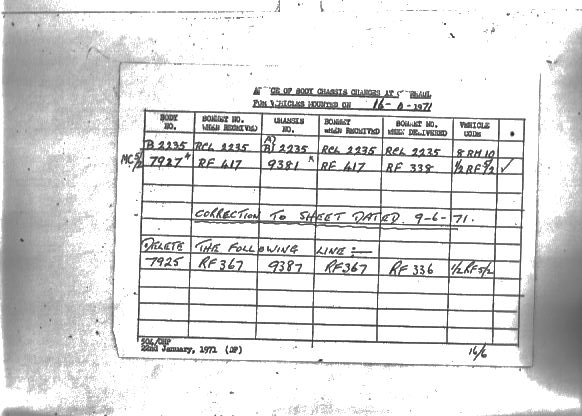 OF BODY CHASSIS CHANGES AT
FOR VEHICLES MOUNTED ON 16- -1971
BODY NO. BONNET NO. WHEN RECEIVED CHASSIS NO. BONNET WHEN RECEIVED BONNET NO. WHEN DELIVERED VEHICLE CODE
B 2235 RCL 2235 A) B) 2235 RCL 2235 RCL 2235 8 RH 10
MC5/2 7927 RF 417 9381 RF 417 RF 338 1/2 RF 5/2 ✓
CORRECTION TO SHEET DATED 9-6-71.
DELETE THE FOLLOWING LINE:-
7925 RF 367 9387 RF367 RF 336 1/2 RF 5/2
22nd January, 1971 (OP)
16/6